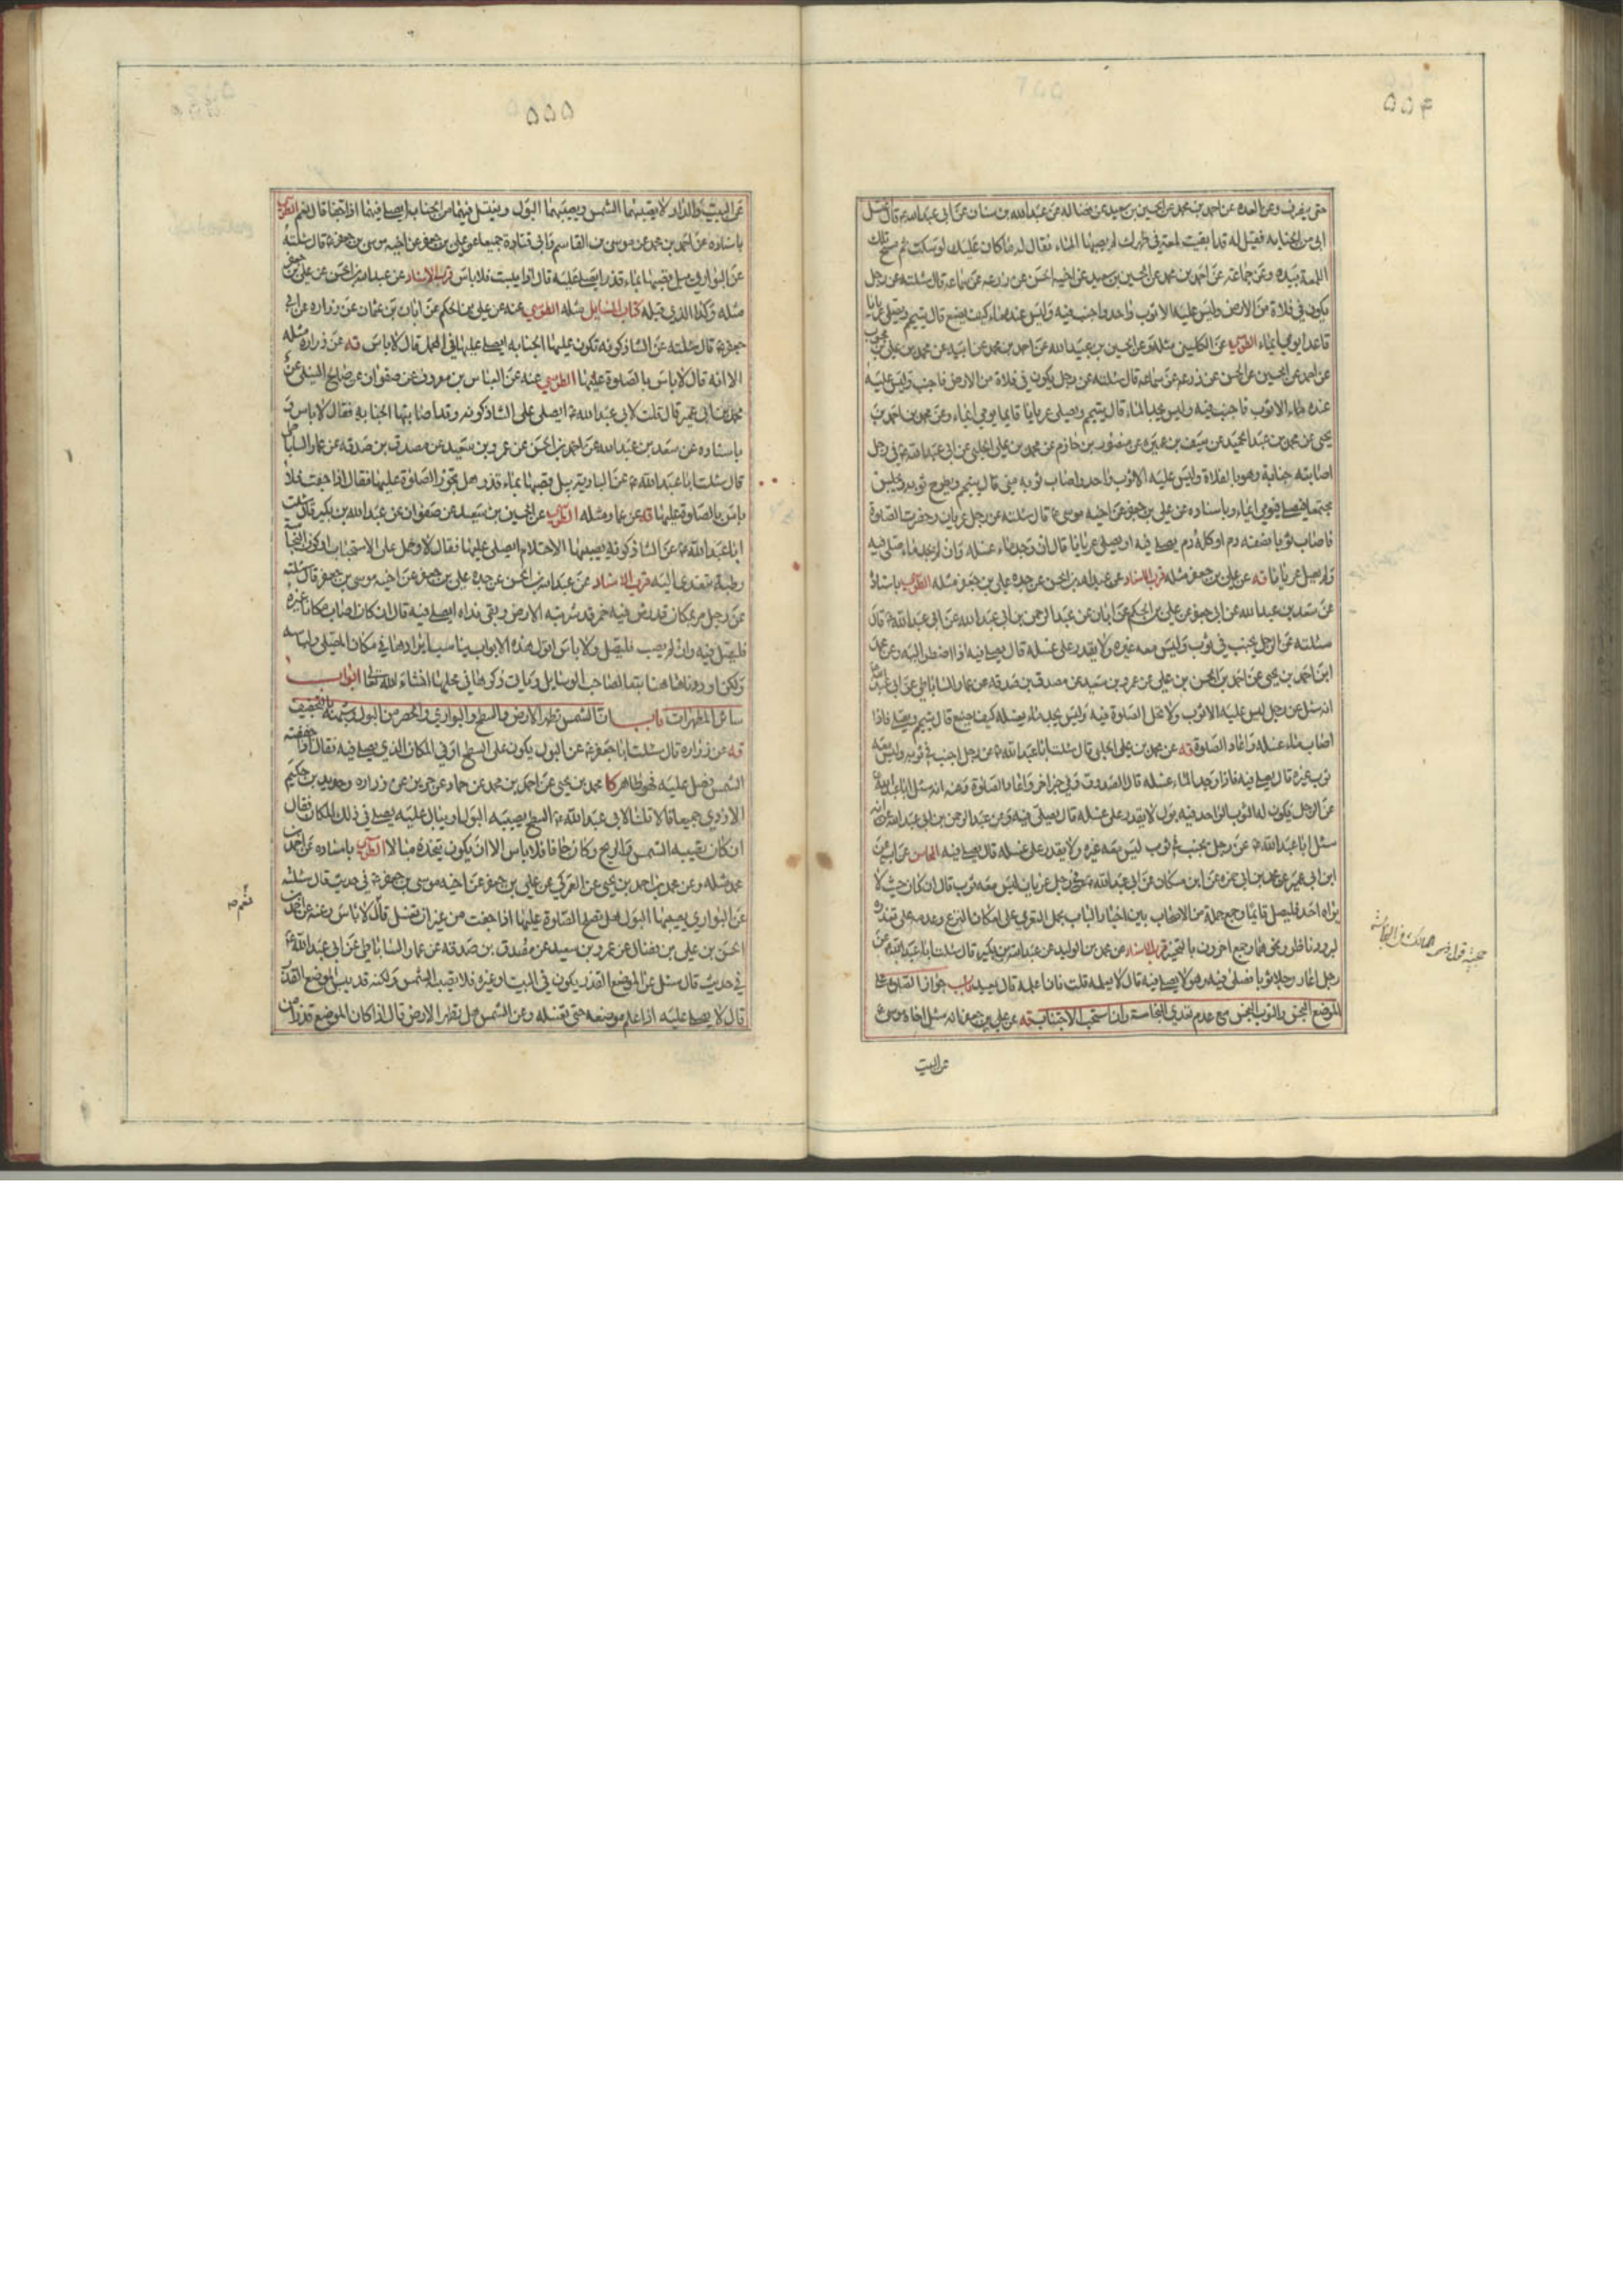 ۵۵۴
حتى يفرف وعن العده عن احمد بن محمد عن الحسين بن سعيد عن فضاله عن عبد الله بن سنان عن ابى عبد الله ع قال اغتسل
ابى من الجنابه فقيل له قد ابقيت لمعة فى ظهرك لم يصبها الماء فقال له ما كان عليك لو سكت ثم مسح تلك
اللمعة بيده وعن جماعة عن احمد بن محمد عن الحسين بن سعيد عن اخيه الحسن عن زرعه عن سماعه قال سئلته عن رجل
يكون فى فلاة من الارض وليس عليه الا ثوب واحد واجنب فيه وليس عنده ماء كيف يصنع قال يتيمم ويصلى عريانا
قاعدا يومى ايماء الطوسى عن الكلينى مثله وعن الحسين بن عبيد الله عن احمد بن محمد عن ابيه عن محمد بن على بن محبوب
عن احمد عن الحسين عن الحسن عن زرعه عن سماعه قال سئلته عن رجل يكون فى فلاة من الارض فاجنب وليس عليه
الا ثوب فاجنب فيه وليس يجد الماء قال يتيمم ويصلى عريانا قايما يومى ايماء وعن محمد بن احمد بن
يحيى عن محمد بن عبد الحميد عن سيف بن عميره عن منصور بن حازم عن محمد بن على الحلبى عن ابى عبد الله ع فى رجل
اصابته جنابة وهو بالفلاة وليس عليه الا ثوب واحد واصاب ثوبه منى قال يتيمم ويطرح ثوبه ويجلس
مجتمعا فيصلى فيومى ايماء وباسناده عن على بن جعفر عن اخيه موسى ع قال سئلته عن رجل عريان وحضرت الصلوة
فاصاب ثوبا نصفه دم او كله دم يصلى فيه او يصلى عريانا قال ان وجد ماء غسله وان لم يجد ماء صلى فيه
ولم يصل عريانا قه عن على بن جعفر مثله قرب الاسناد عن عبد الله بن الحسن عن جده على بن جعفر مثله الطوسى باسناده
عن سعد بن عبد الله عن ابى جعفر عن على بن الحكم عن ابان عن عبد الرحمن بن ابى عبد الله عن ابى عبد الله ع قال
سئلته عن الرجل يجنب فى ثوب وليس معه غيره ولا يقدر على غسله قال يصلى فيه اذا اضطر اليه وعن محمد
ابن احمد بن يحيى عن احمد بن الحسن بن على عن عمرو بن سعيد عن مصدق بن صدقه عن عمار الساباطى عن ابى عبد الله
انه سئل عن رجل ليس عليه الا ثوب ولا تحل الصلوة فيه وليس يجد ماء يغسله كيف يصنع قال يتيمم ويصلى فاذا
اصاب ماء غسله واعاد الصلوة قه عن محمد بن على الحلبى قال سئلت ابا عبد الله ع عن رجل اجنب فى ثوبه وليس معه
ثوب غيره قال يصلى فيه فاذا وجد الماء غسله قال الصدوق وفى خبر اخر واعاد الصلوة وعنه انه سئل ابا عبد الله ع
عن الرجل يكون له الثوب الواحد فيه بول لا يقدر على غسله قال يصلى فيه وعن عبد الرحمن بن ابى عبد الله انه
سئل ابا عبد الله ع عن رجل يجنب فى ثوب ليس معه غيره ولا يقدر على غسله قال يصلى فيه المحاسن عن ابيه عن
ابن ابى عمير عن محمد بن ابى حمزه عن ابن مسكان عن ابى عبد الله ع فى رجل عريان ليس معه ثوب قال ان كان حيث لا
يراه احد فليصل قايما وجمع جملة من الاصحاب بين اخبار الباب بحمل التعرى على امكان النزع وعدمه على تعذره
لبرد وناظر ونحوهما وجمع اخرون بالتخيير قرب الاسناد عن محمد بن الوليد عن عبد الله بن بكير قال سئلت ابا عبد الله ع عن
رجل اعار رجلا ثوبا فصلى فيه وهو لا يصلى فيه قال لا يعلمه قلت فان اعلمه قال يعيد باب جواز الصلوة على
الموضع النجس والثوب النجس مع عدم تعدى النجاسة وان استحب الاجتناب قه عن على بن جعفر انه سئل اخاه موسى
عن البيت
۵۵۵
عن البيت والدار لا يصيبهما الشمس ويصيبهما البول ويغتسل فيهما من الجنابة ايصلى فيهما اذا جفا قال نعم الطوسى
باسناده عن احمد بن محمد عن موسى بن القاسم وابى قتادة جميعا عن على بن جعفر عن اخيه موسى بن جعفر ع قال سئلته
عن البوارى يبل قصبها بماء قذر ايصلى عليه قال اذا يبست فلا باس قرب الاسناد عن عبد الله بن الحسن عن على بن جعفر
مثله وكذا الذى قبله كتاب المسايل مثله الطوسى عنه عن على بن الحكم عن ابان بن عثمان عن زراره عن ابى
جعفر ع قال سئلته عن الشاذكونه تكون عليها الجنابه ايصلى عليها فى المحمل قال لا باس قه عن زراره مثله
الا انه قال لا باس بالصلوة عليها الطوسى عنه عن العباس بن معروف عن صفوان عن صالح النيلى عن
محمد بن ابى عمير قال قلت لابى عبد الله ع اصلى على الشاذكونه وقد اصابتها الجنابه فقال لا باس و
باسناده عن سعد بن عبد الله عن احمد بن الحسن عن عمرو بن سعيد عن مصدق بن صدقه عن عمار الساباطى
قال سئلت ابا عبد الله ع عن البارية يبل قصبها بماء قذر هل تجوز الصلوة عليها فقال اذا جفت فلا
باس بالصلوة عليها قه عن عمار مثله الطوسى عن الحسين بن سعيد عن صفوان عن عبد الله بن بكير قال سئلت
ابا عبد الله ع عن الشاذكونه يصيبها الاحتلام ايصلى عليها فقال لا وحمل على الاستحباب او كون النجاسة
رطبة متعدى اليه قرب الاسناد عن عبد الله بن الحسن عن جده على بن جعفر عن اخيه موسى بن جعفر قال سئلته
عن رجل مر بمكان قد رش فيه خمر قد شربته الارض وبقى نداه ايصلى فيه قال ان كان اصاب مكانا غيره
فليصل فيه وان لم يصب فليصل ولا باس اقول هذه الابواب يناسب ايرادها فى مكان المصلى ولباسه
ولكن اوردناها هنا تبعا لصاحب الوسايل وياتى ذكرها فى محلها انشاء الله تعالى ابواب
سائر المطهرات باب ان الشمس تطهر الارض والسطح والبوارى والحصر من البول وشبهه بالتجفيف
قه عن زراره قال سئلت ابا جعفر ع عن البول يكون على السطح او فى المكان الذى يصلى فيه فقال اذا جففته
الشمس فصل عليه فهو طاهر كا محمد بن يحيى عن احمد بن محمد عن حماد عن حريز عن زراره وحديد بن حكيم
الازدى جميعا قالا قلنا لابى عبد الله ع السطح يصيبه البول او يبال عليه يصلى فى ذلك المكان فقال
ان كان تصيبه الشمس والريح وكان جافا فلا باس الا ان يكون يتخذه مبالا الطوسى باسناده عن احمد بن
محمد مثله وعن محمد بن احمد بن يحيى عن العمركى عن على بن جعفر عن اخيه موسى بن جعفر ع فى حديث قال سئلته
عن البوارى يصيبها البول هل يصلح الصلوة عليها اذا جفت من غير ان تغسل قال لا باس وعنه عن احمد بن
الحسن بن على بن فضال عن عمرو بن سعيد عن مصدق بن صدقه عن عمار الساباطى عن ابى عبد الله ع
فى حديث قال سئل عن الموضع القذر يكون فى البيت او غيره فلا يصيبه الشمس ولكنه قد يبس الموضع القذر
قال لا يصلى عليه اذا علم موضعه حتى تغسله وعن الشمس هل يطهر الارض قال اذا كان الموضع قذرا من
نعم صه